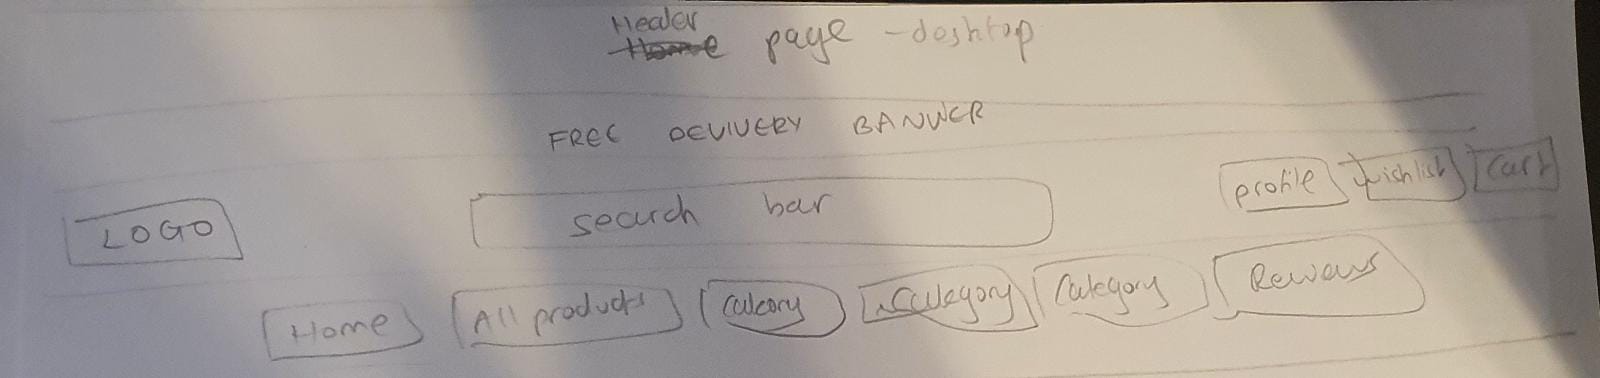 Header
Home page - desktop
FREE DELIVERY BANNER
LOGO search bar profile wishlist Cart
Home All products Category Category Category